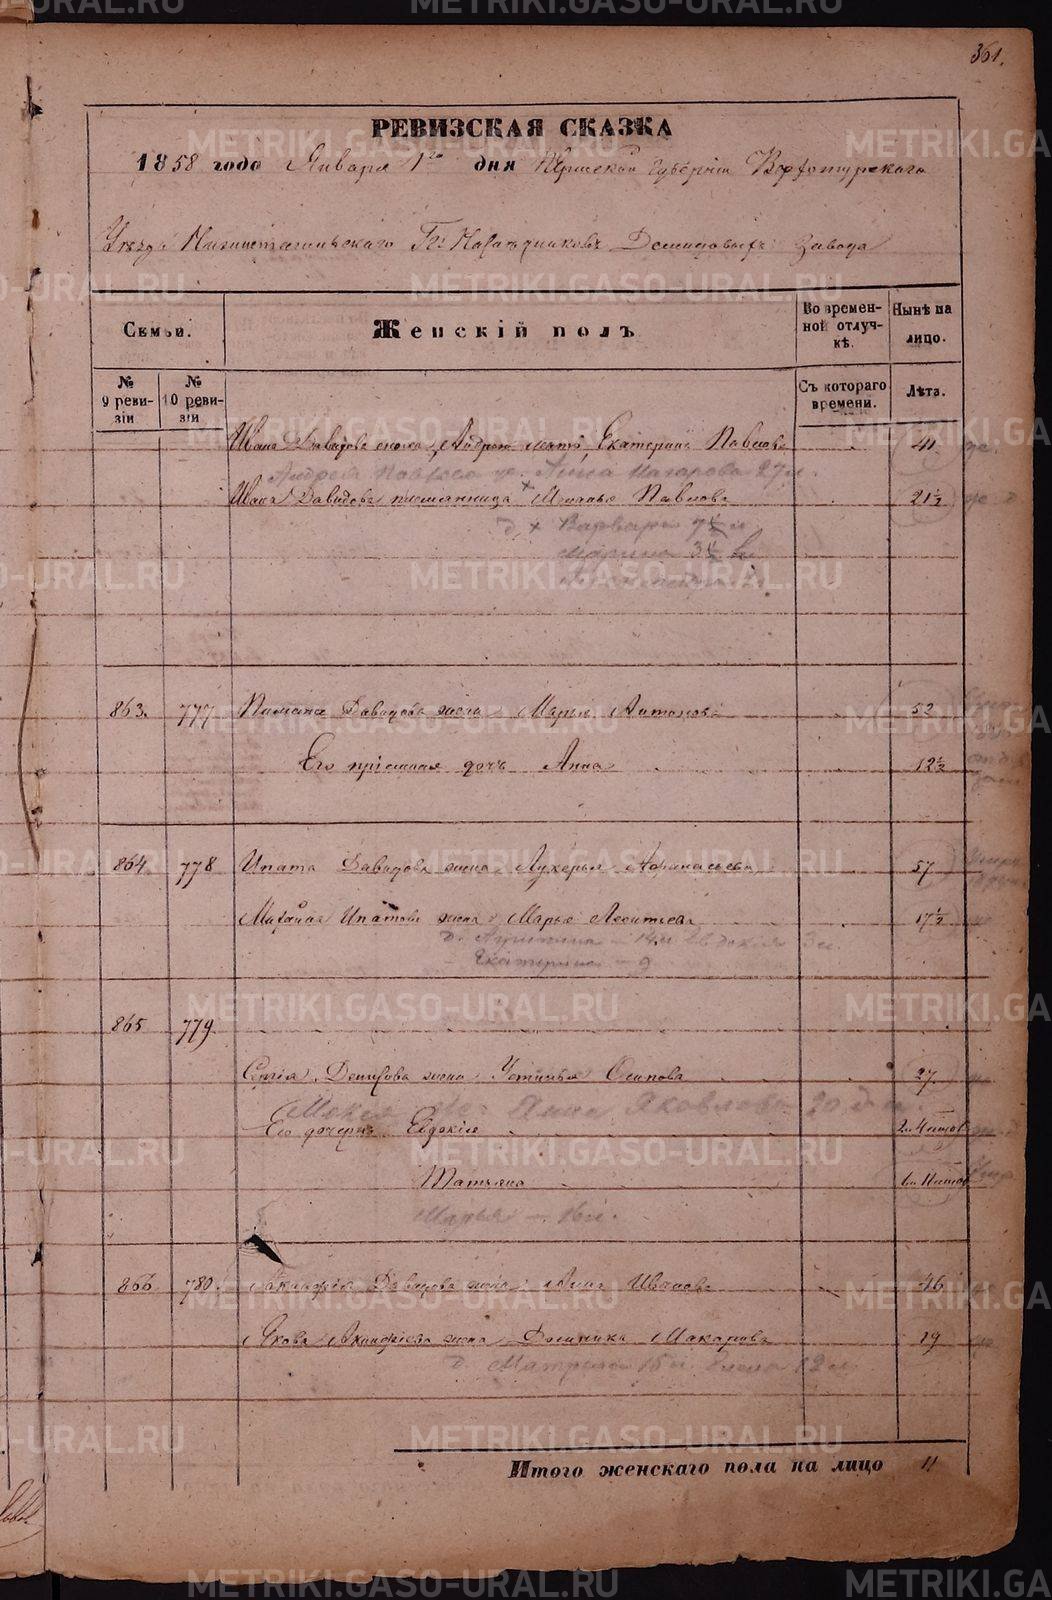 361.
РЕВИЗСКАЯ СКАЗКА
1858 года Января 1го дня Пермской губерніи Верхотурскаго
Уезда Нижнетагильскаго Гг. Наследниковъ Демидовыхъ Завода
Семьи.
Женскій полъ
Во времен-
ной отлуч-
кѣ.
Нынѣ на
лицо.
№ 9 реви-
зіи
№ 10 реви-
зіи
Съ котораго
времени.
Лѣта.
Ивана Давидова сноха, Андрея мать, Екатерина Павлова 41
Андрея Павлова ж. Анна Макарова 27 л.
Ивана Давидова племянница Павлова 21½
д. Варвара 7½
Марина 3½
863. 777 Пимена Давидова жена Марья Антонова 52
Его пріемная дочь Анна 12½
864. 778 Ипата Давидова жена Лукерья Афанасьева 57
Михаила Ипатова жена Марья Леонтьева 17½
д. 14 л. Евдокія 3 л.
Екатерина - 9
865 779
Сергія Денисова жена Устинья Осипова 27.
ж. Анна Яковлева 20
Его дочери: Евдокія 2 л. 4 мѣсяц.
Татьяна
Марья - 16 л.
866. 780. Акинфія Давидова жена Анна Иванова 46
Якова Акинфіева жена Домника Макарова 19
д. Матрена 15 л. Елена 12 л.
Итого женскаго пола на лицо 11
METRIKI.GASO-URAL.RU